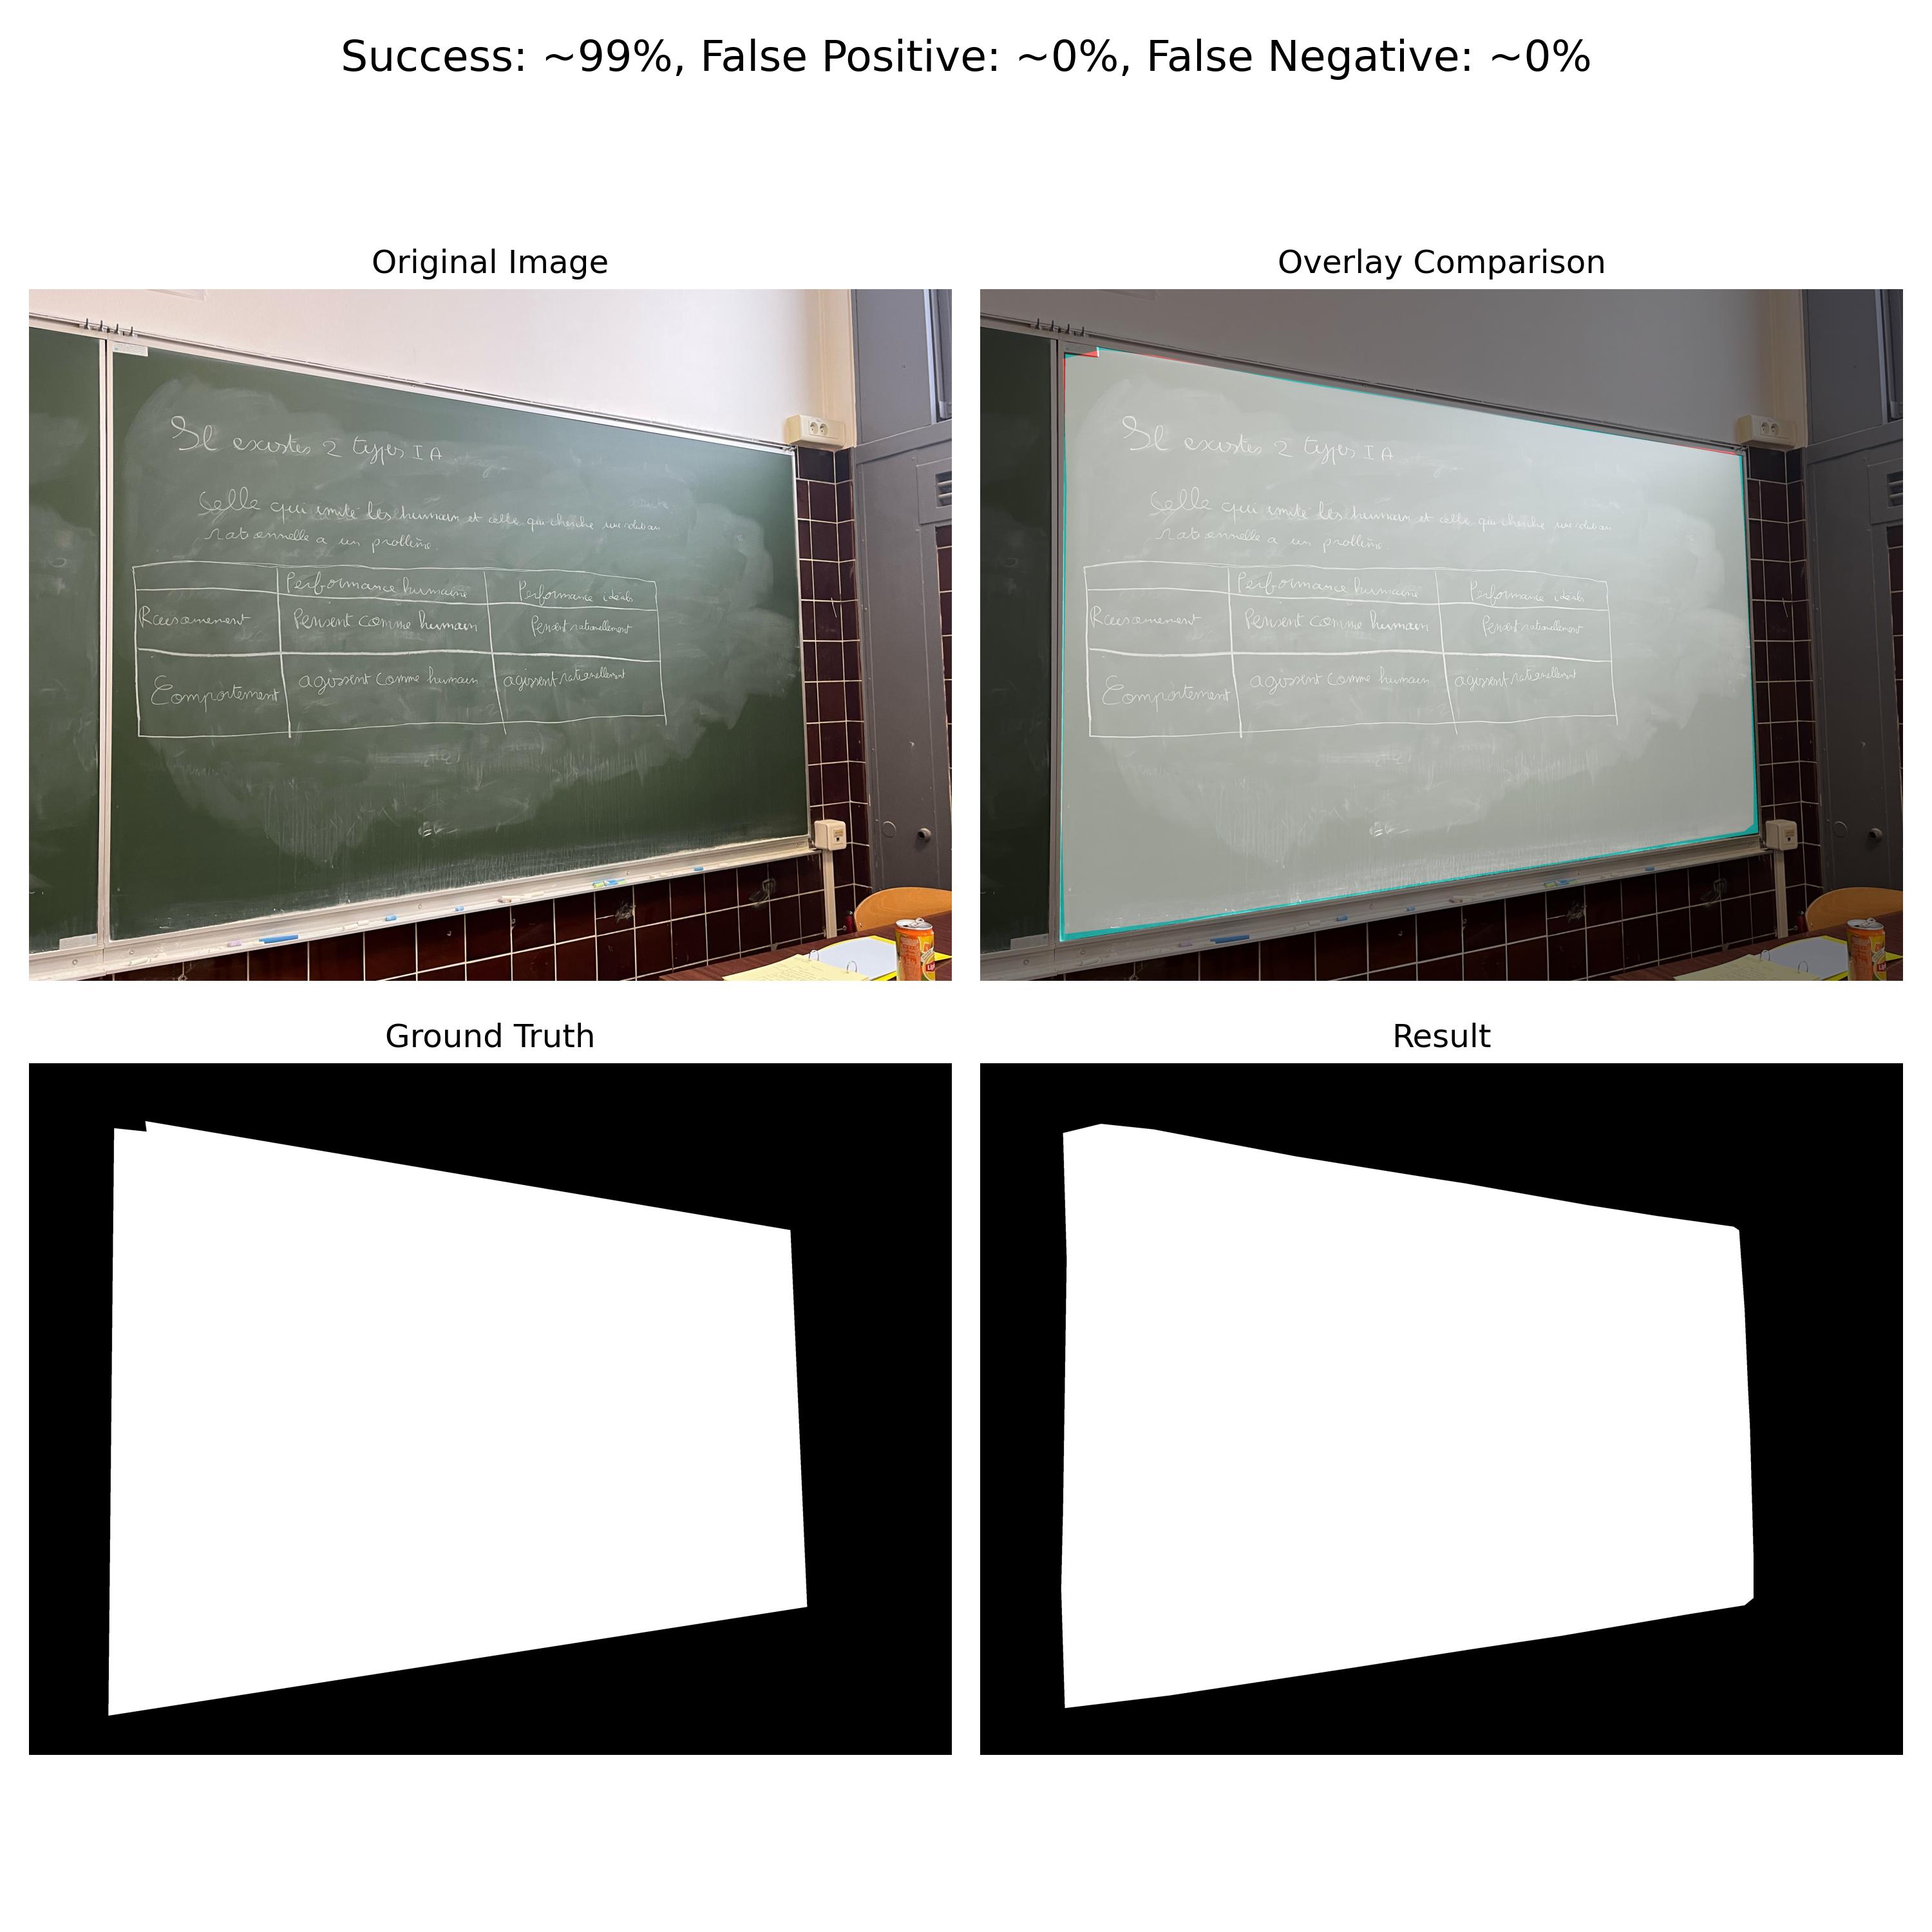 Success: ~99%, False Positive: ~0%, False Negative: ~0%
Original Image
Overlay Comparison
Il existes 2 types IA
Celle qui imite les humain et celle qui cherche
rationnelle a un problème.
Performance humaine
Performance idéale
Raisonnement
Pensent comme humain
Pensent rationellement
Comportement
agissent comme humain
agissent rationellement
Il existes 2 types IA
Celle qui imite les humain et celle qui cherche
rationnelle a un problème.
Performance humaine
Performance idéale
Raisonnement
Pensent comme humain
Pensent rationellement
Comportement
agissent comme humain
agissent rationellement
Ground Truth
Result